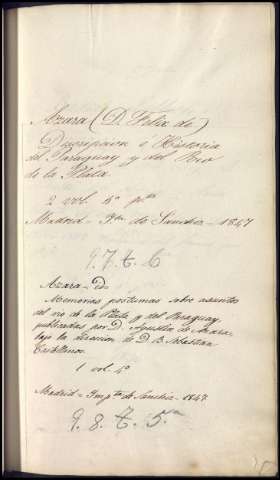 Azara (D. Felix de)
Descripcion é Historia
del Paraguay y del Rio
de la Plata
2 vol. 4º
Madrid - Ita de Sanchiz - 1847
9. 7. t. 6
Azara - id.
Memorias postumas sobre asuntos
del rio de la Plata y del Paraguay,
publicadas por D. Agustin de Azara
bajo la direccion de D. B. Sebastian
Castellanos.
1 vol. 4º
Madrid - Impta de Sanchiz - 1847
9. 8. t. 5